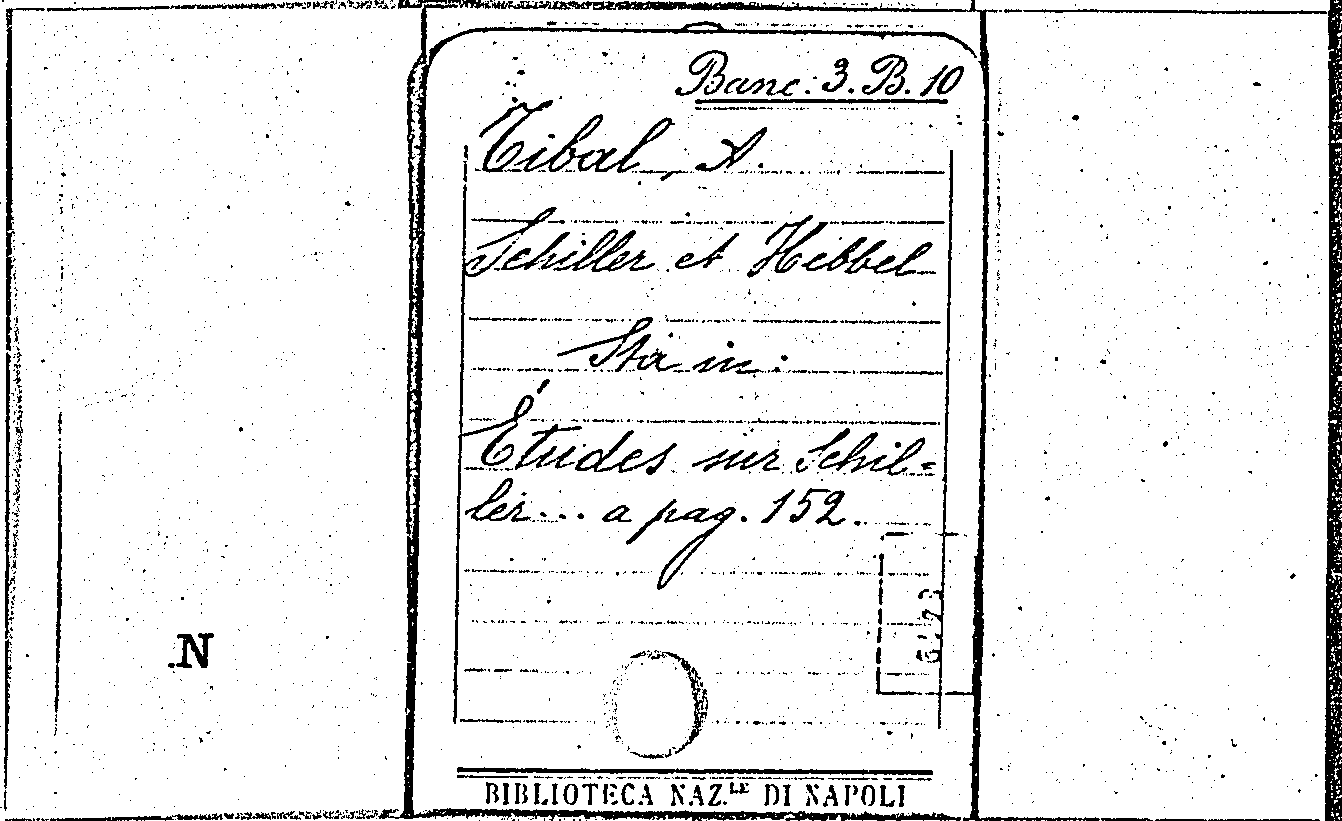 Banc. 3. B. 10
Tibal, A.
Schiller et Hebbel
Sta in:
Études sur Schil=
ler... a pag. 152.
N
BIBLIOTECA NAZ.LE DI NAPOLI